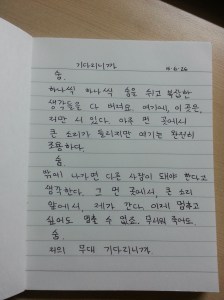 기다리니까 4.6.26
숨.
하나씩 하나씩 숨을 쉬고 복잡한
생각들을 다 버려요. 여기에, 이 곳은,
저만 서 있다. 아주 먼 곳에서
큰 소리가 들리지만 여기는 완전히
조용하다.
숨.
밖에 나가면 다른 사람이 돼야 한다고
생각한다. 그 먼 곳에서, 큰 소리
앞에서, 제가 간다. 이제 멈추고
싶어도 멈출 수 없죠. 무서워 죽어도.
숨.
저의 무대 기다리니까